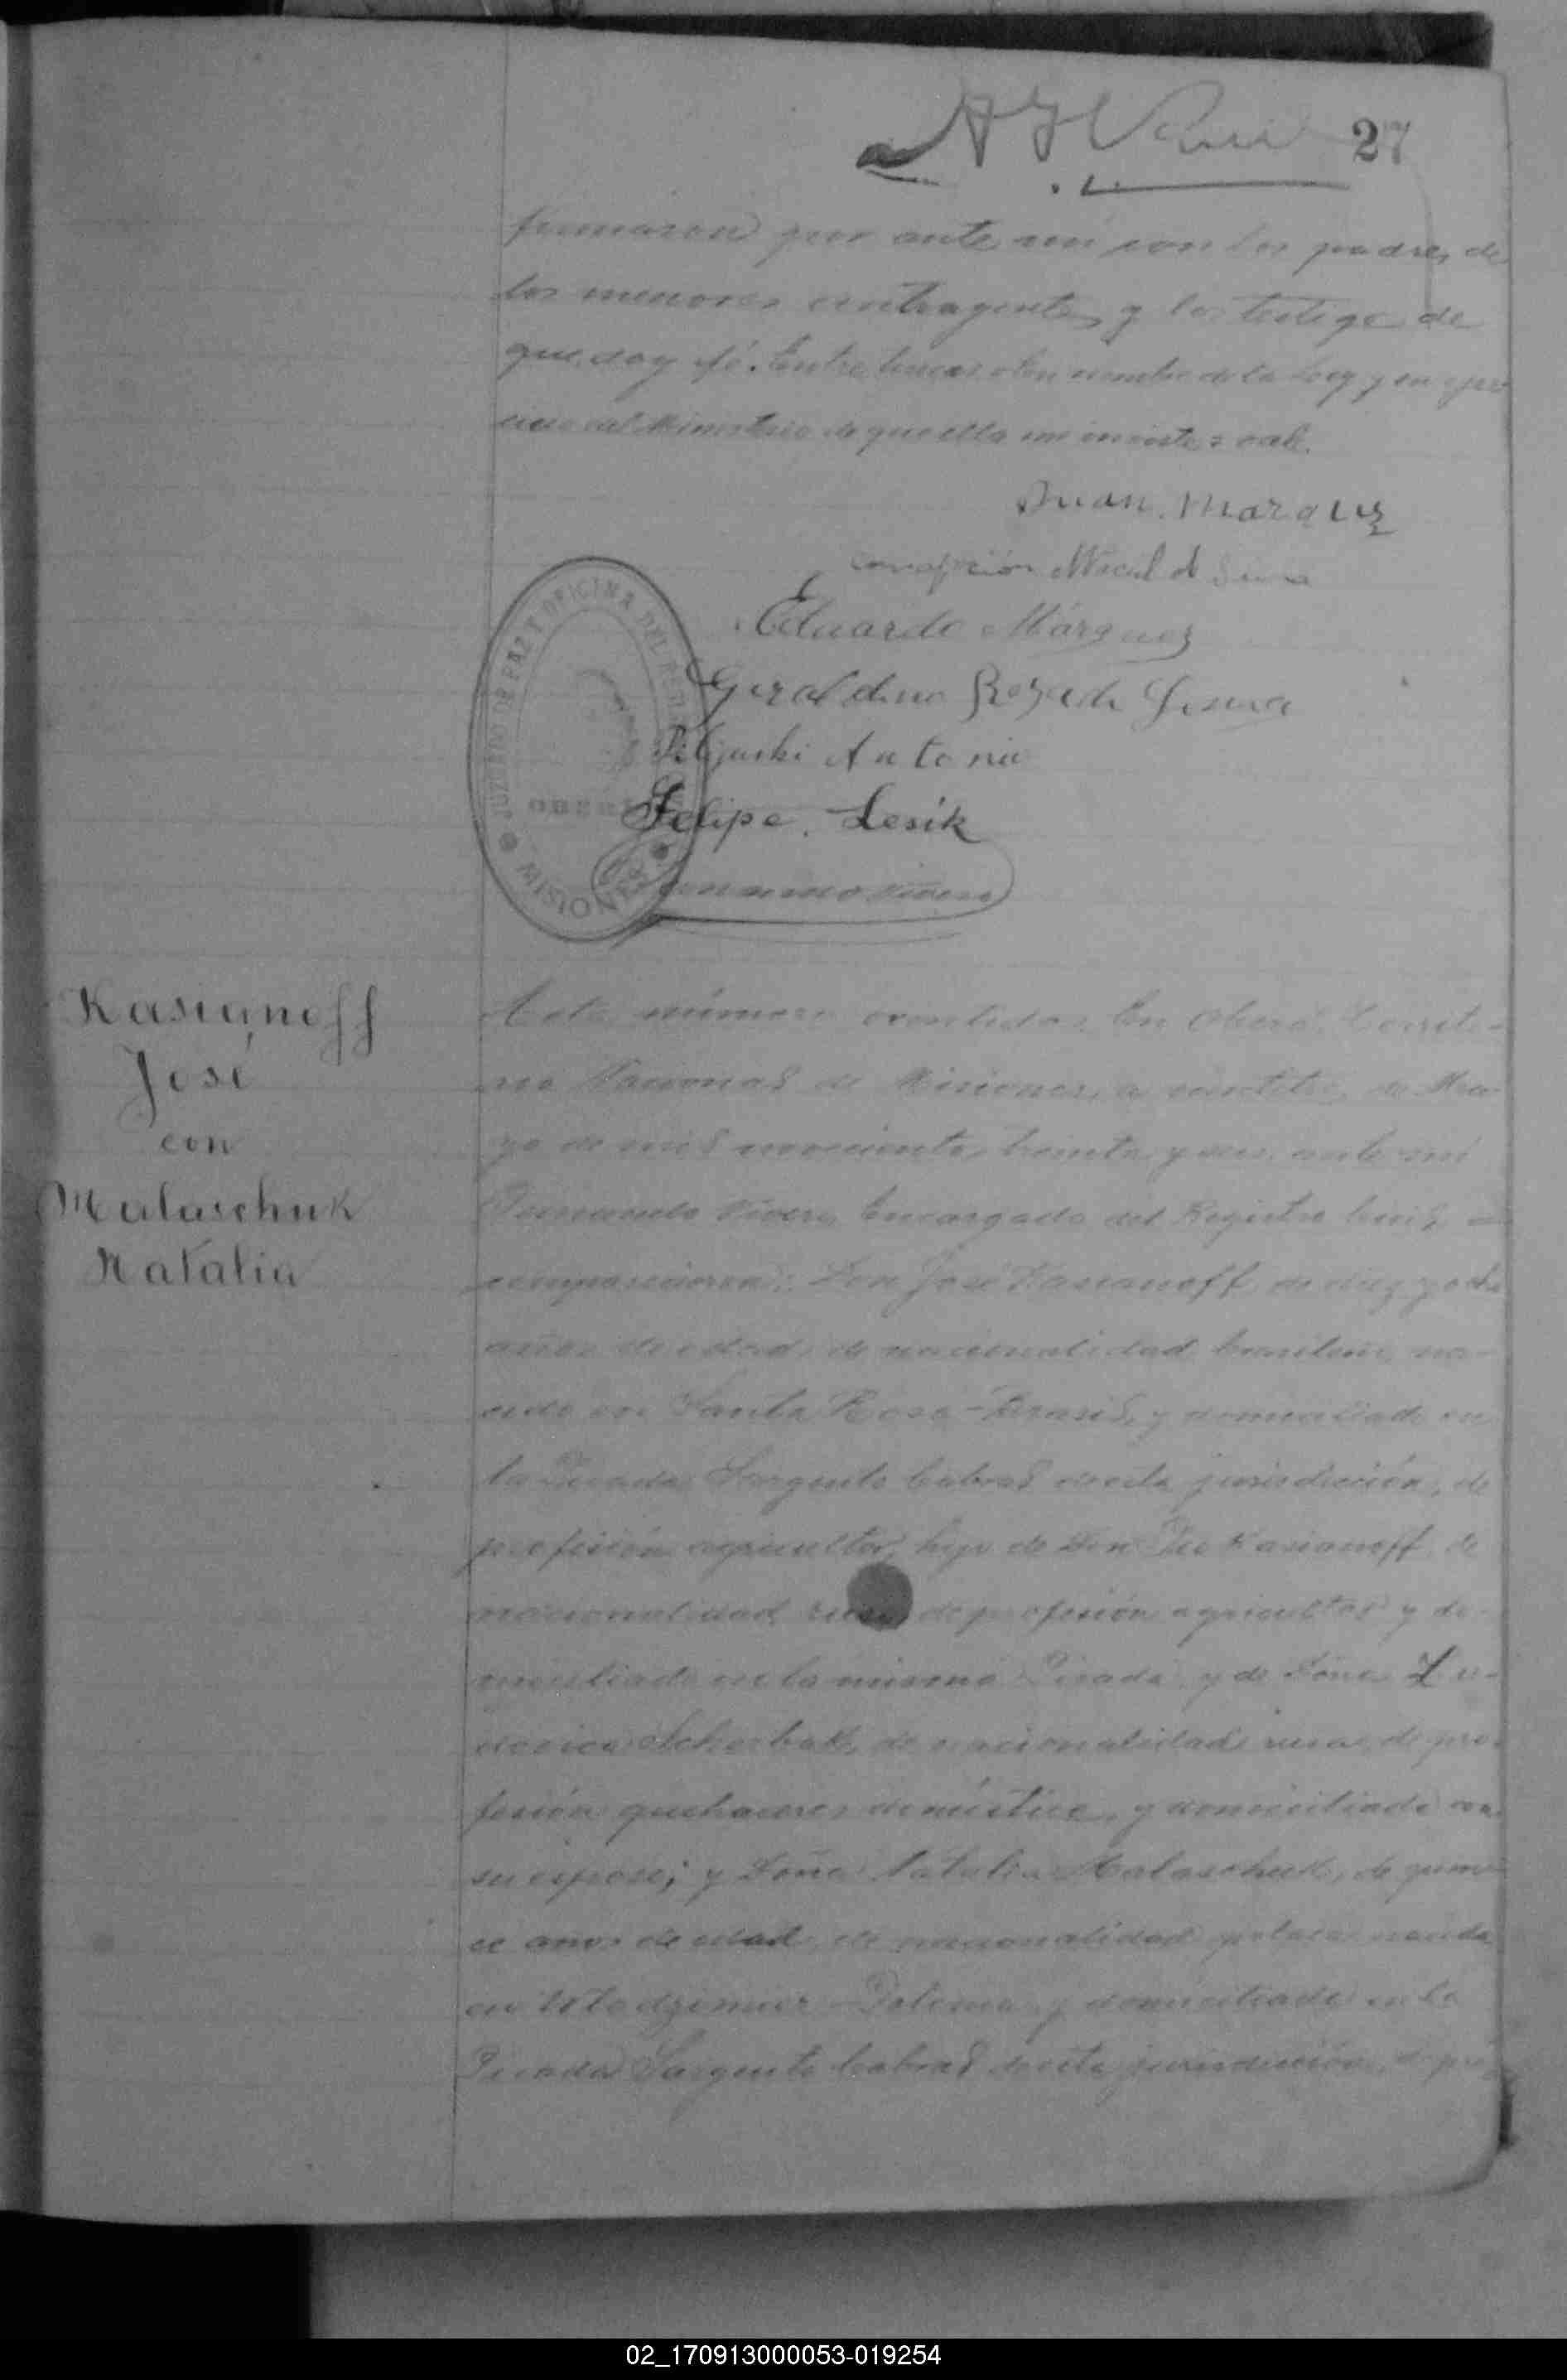 27
firmaron por ante mí con los padres de
los menores contrayentes y los testigos de
que doy fé. Entre lineas: En nombre de la Ley y en ejer
cicio del Ministerio de que ella me inviste = vale.
Juan Marquez
Eduardo Márquez
Felipe Lesik
JUZGADO DE PAZ Y OFICINA DEL
MISIONES
Kasianoff
José
con
Malaschuk
Natalia
Acta número veintidos. En Oberá, Territo-
rio Nacional de Misiones, a veintitrés de Ma-
yo de mil novecientos treinta y seis, ante mí
Fernando Vivero, Encargado del Registro Civil,
comparecieron: Don José Kasianoff, de diez y ocho
años de edad, de nacionalidad brasileña, na-
cido en Santa Rosa - Brasil, y domiciliado en
la Picada Sargento Cabral de esta jurisdicción, de
profesión agricultor, hijo de Don Kasianoff, de
nacionalidad ruso, de profesión agricultor y do-
miciliado en la misma Picada, y de Doña
de nacionalidad rusa, de pro-
fesión quehaceres domésticos, y domiciliada con
su esposo; y Doña Natalia Malaschuk, de quin-
ce años de edad, de nacionalidad polaca, nacida
en Wlodzimierz - Polonia y domiciliada en la
Picada Sargento Cabral de esta jurisdicción, de pro
02_170913000053-019254